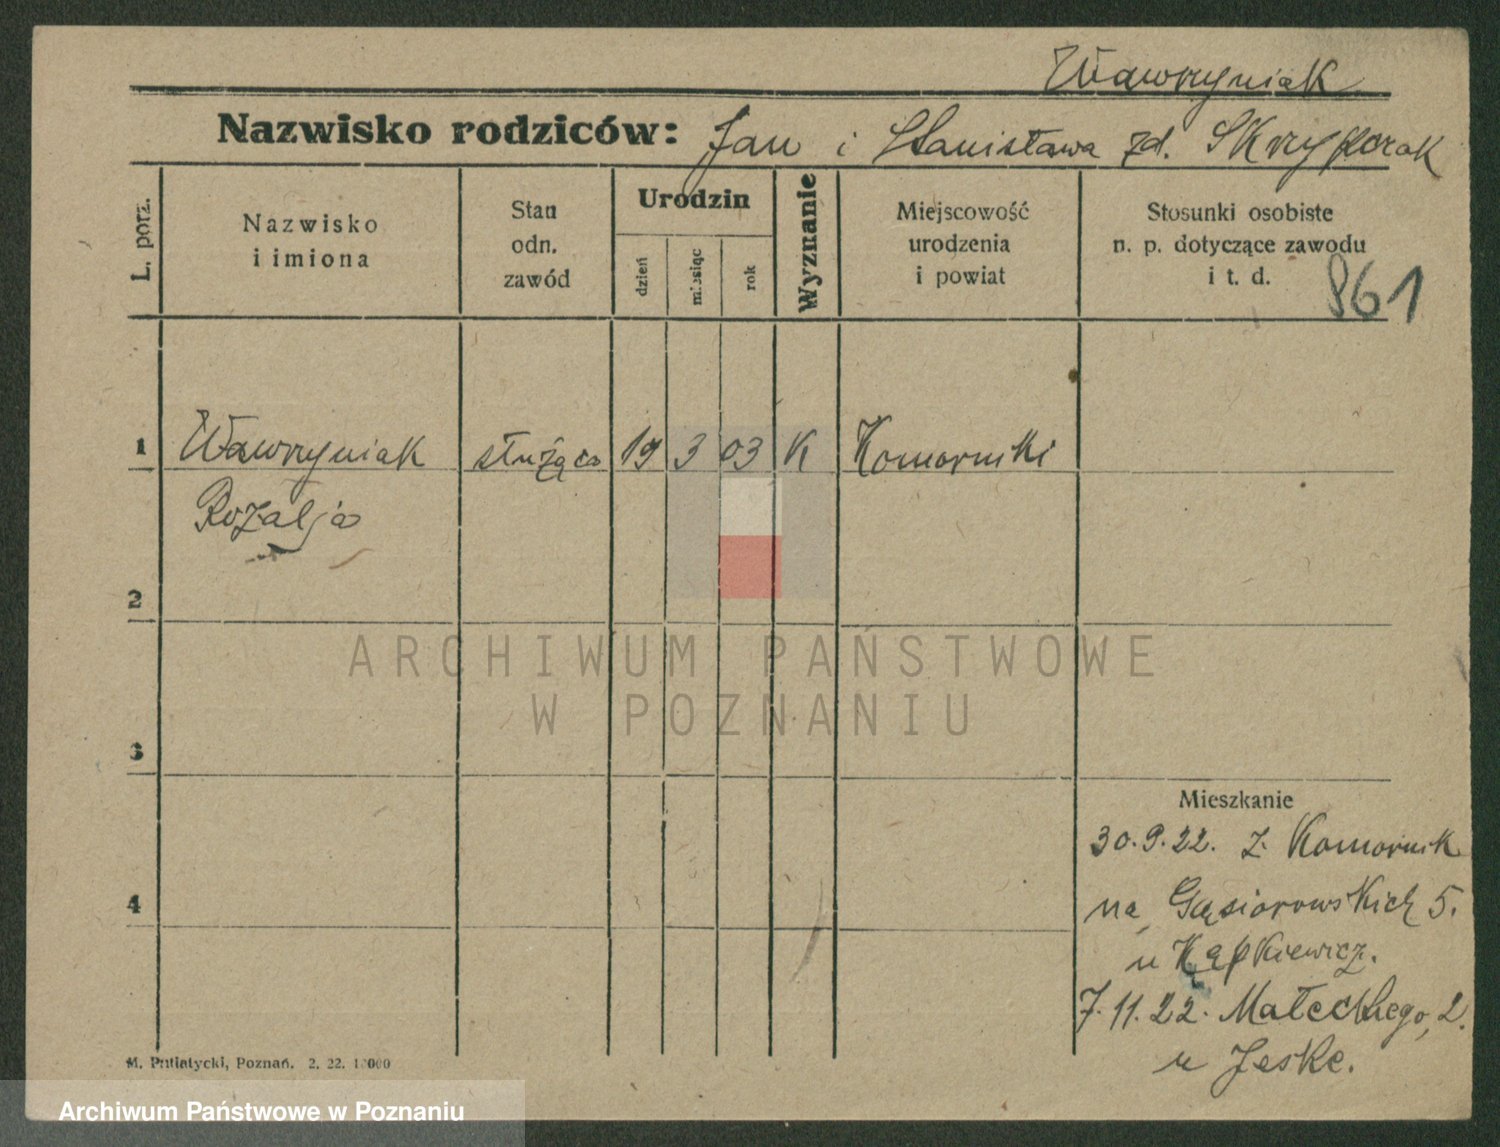 Wawrzyniak
Nazwisko rodziców: Jan i Stanisława zd. Skrzypczak
L. porz.
Nazwisko
i imiona
Stan
odn.
zawód
Urodzin
dzień
miesiąc
rok
Wyznanie
Miejscowość
urodzenia
i powiat
Stosunki osobiste
n. p. dotyczące zawodu
i t. d.
861
1 Wawrzyniak służąca 19 3 03 K Komorniki
Rozalja
2
ARCHIWUM PAŃSTWOWE
W POZNANIU
3
Mieszkanie
30.9.22. z Komornik
4
na Gąsiorowskich 5.
u Kąpkiewicz.
7.11.22. Małeckiego, 2.
u Jeske.
M. Putiatycki, Poznań. 2. 22.
Archiwum Państwowe w Poznaniu